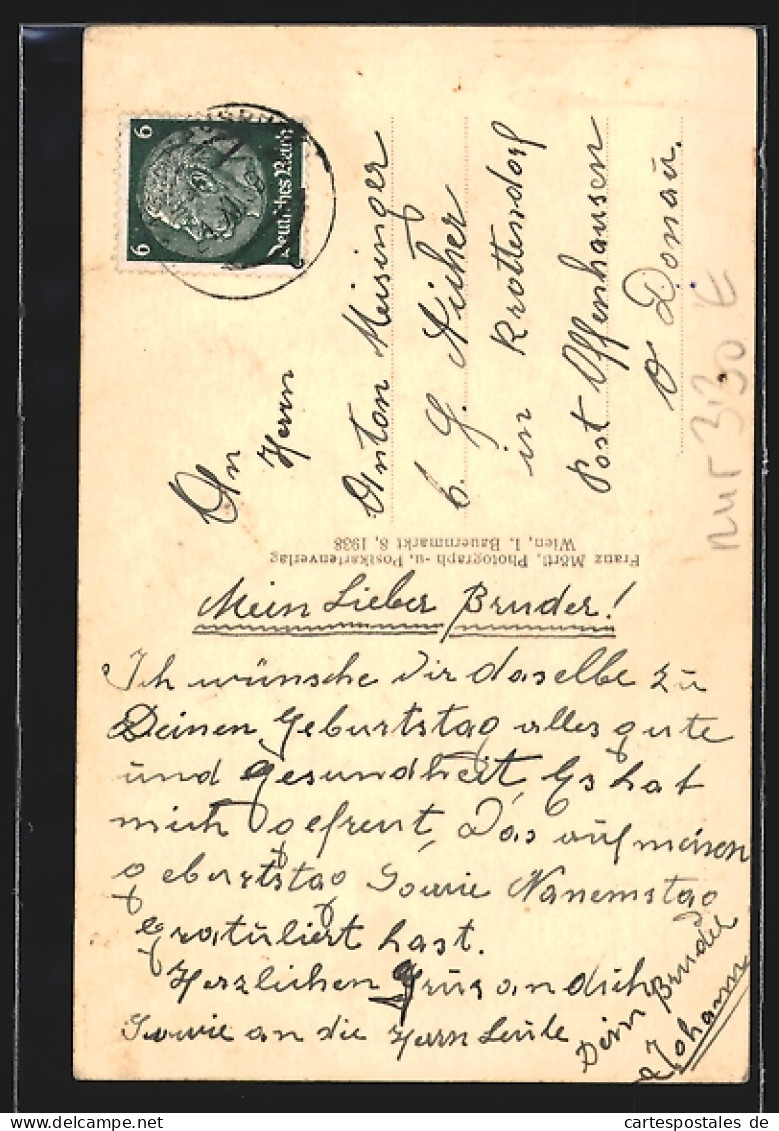 6
6
Deutches Reich
An
Herrn
Anton Meisinger
b. G. Aicher
in Krottendorf
Post Offenhausen
O Donau.
nur 3,30 €
Franz Mörtl, Photograph -u. Postkartenverlag
Wien, I. Bauernmarkt 8, 1938
Mein Lieber Bruder!
Ich wünsche Dir daselbe zu
Deinen Geburtstag alles gute
und Gesundheit, Es hat
mich gefreut, Das auf meinen
geburtstag Sowie Nanemstag
gratuliert hast.
Herzlichen Grus an dich
Sowie an die Hern Leute
Dein Bruder
Johann
www.cartespostales.de
cartespostales de